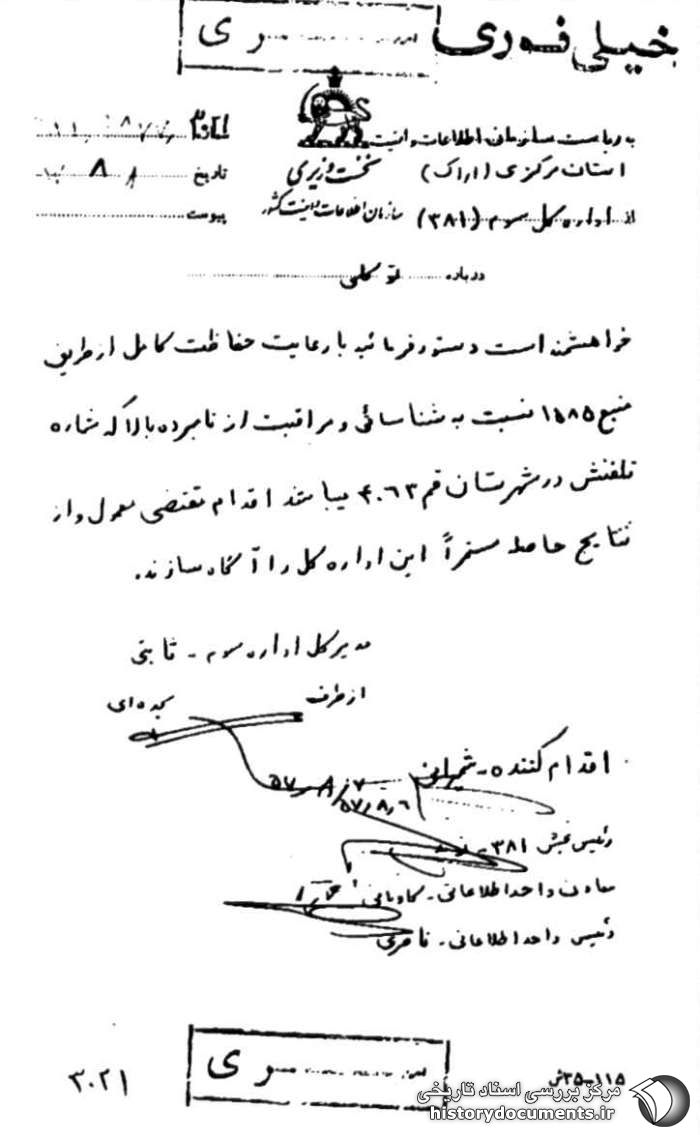 خیلی فوری
سری
به ریاست سازمان اطلاعات و امنیت
استان مرکزی (اراک)
از اداره کل سوم (۳۸۱)
نخست وزیری
سازمان اطلاعات و امنیت کشور
شماره
تاریخ
پیوست
درباره توکلی
خواهشمند است دستور فرمائید با رعایت حفاظت کامل از طریق
منبع ۱۵۸۵ نسبت به شناسائی و مراقبت از نامبرده بالا که شماره
تلفنش در شهرستان قم ۴۰۶۲ میباشد اقدام مقتضی معمول و از
نتایج حاصله مستمراً این اداره کل را آگاه سازند.
مدیر کل اداره سوم - ثابتی
از طرف
اقدام کننده - شمیرانی
۵۷/۸/۷
۵۷/۸/۶
رئیس بخش ۳۸۱ -
معاون واحد اطلاعاتی - کاویانی
رئیس واحد اطلاعاتی -
سری
۳۰۲۱
۱۱۵-۳۵ش
مرکز بررسی اسناد تاریخی
historydocuments.ir